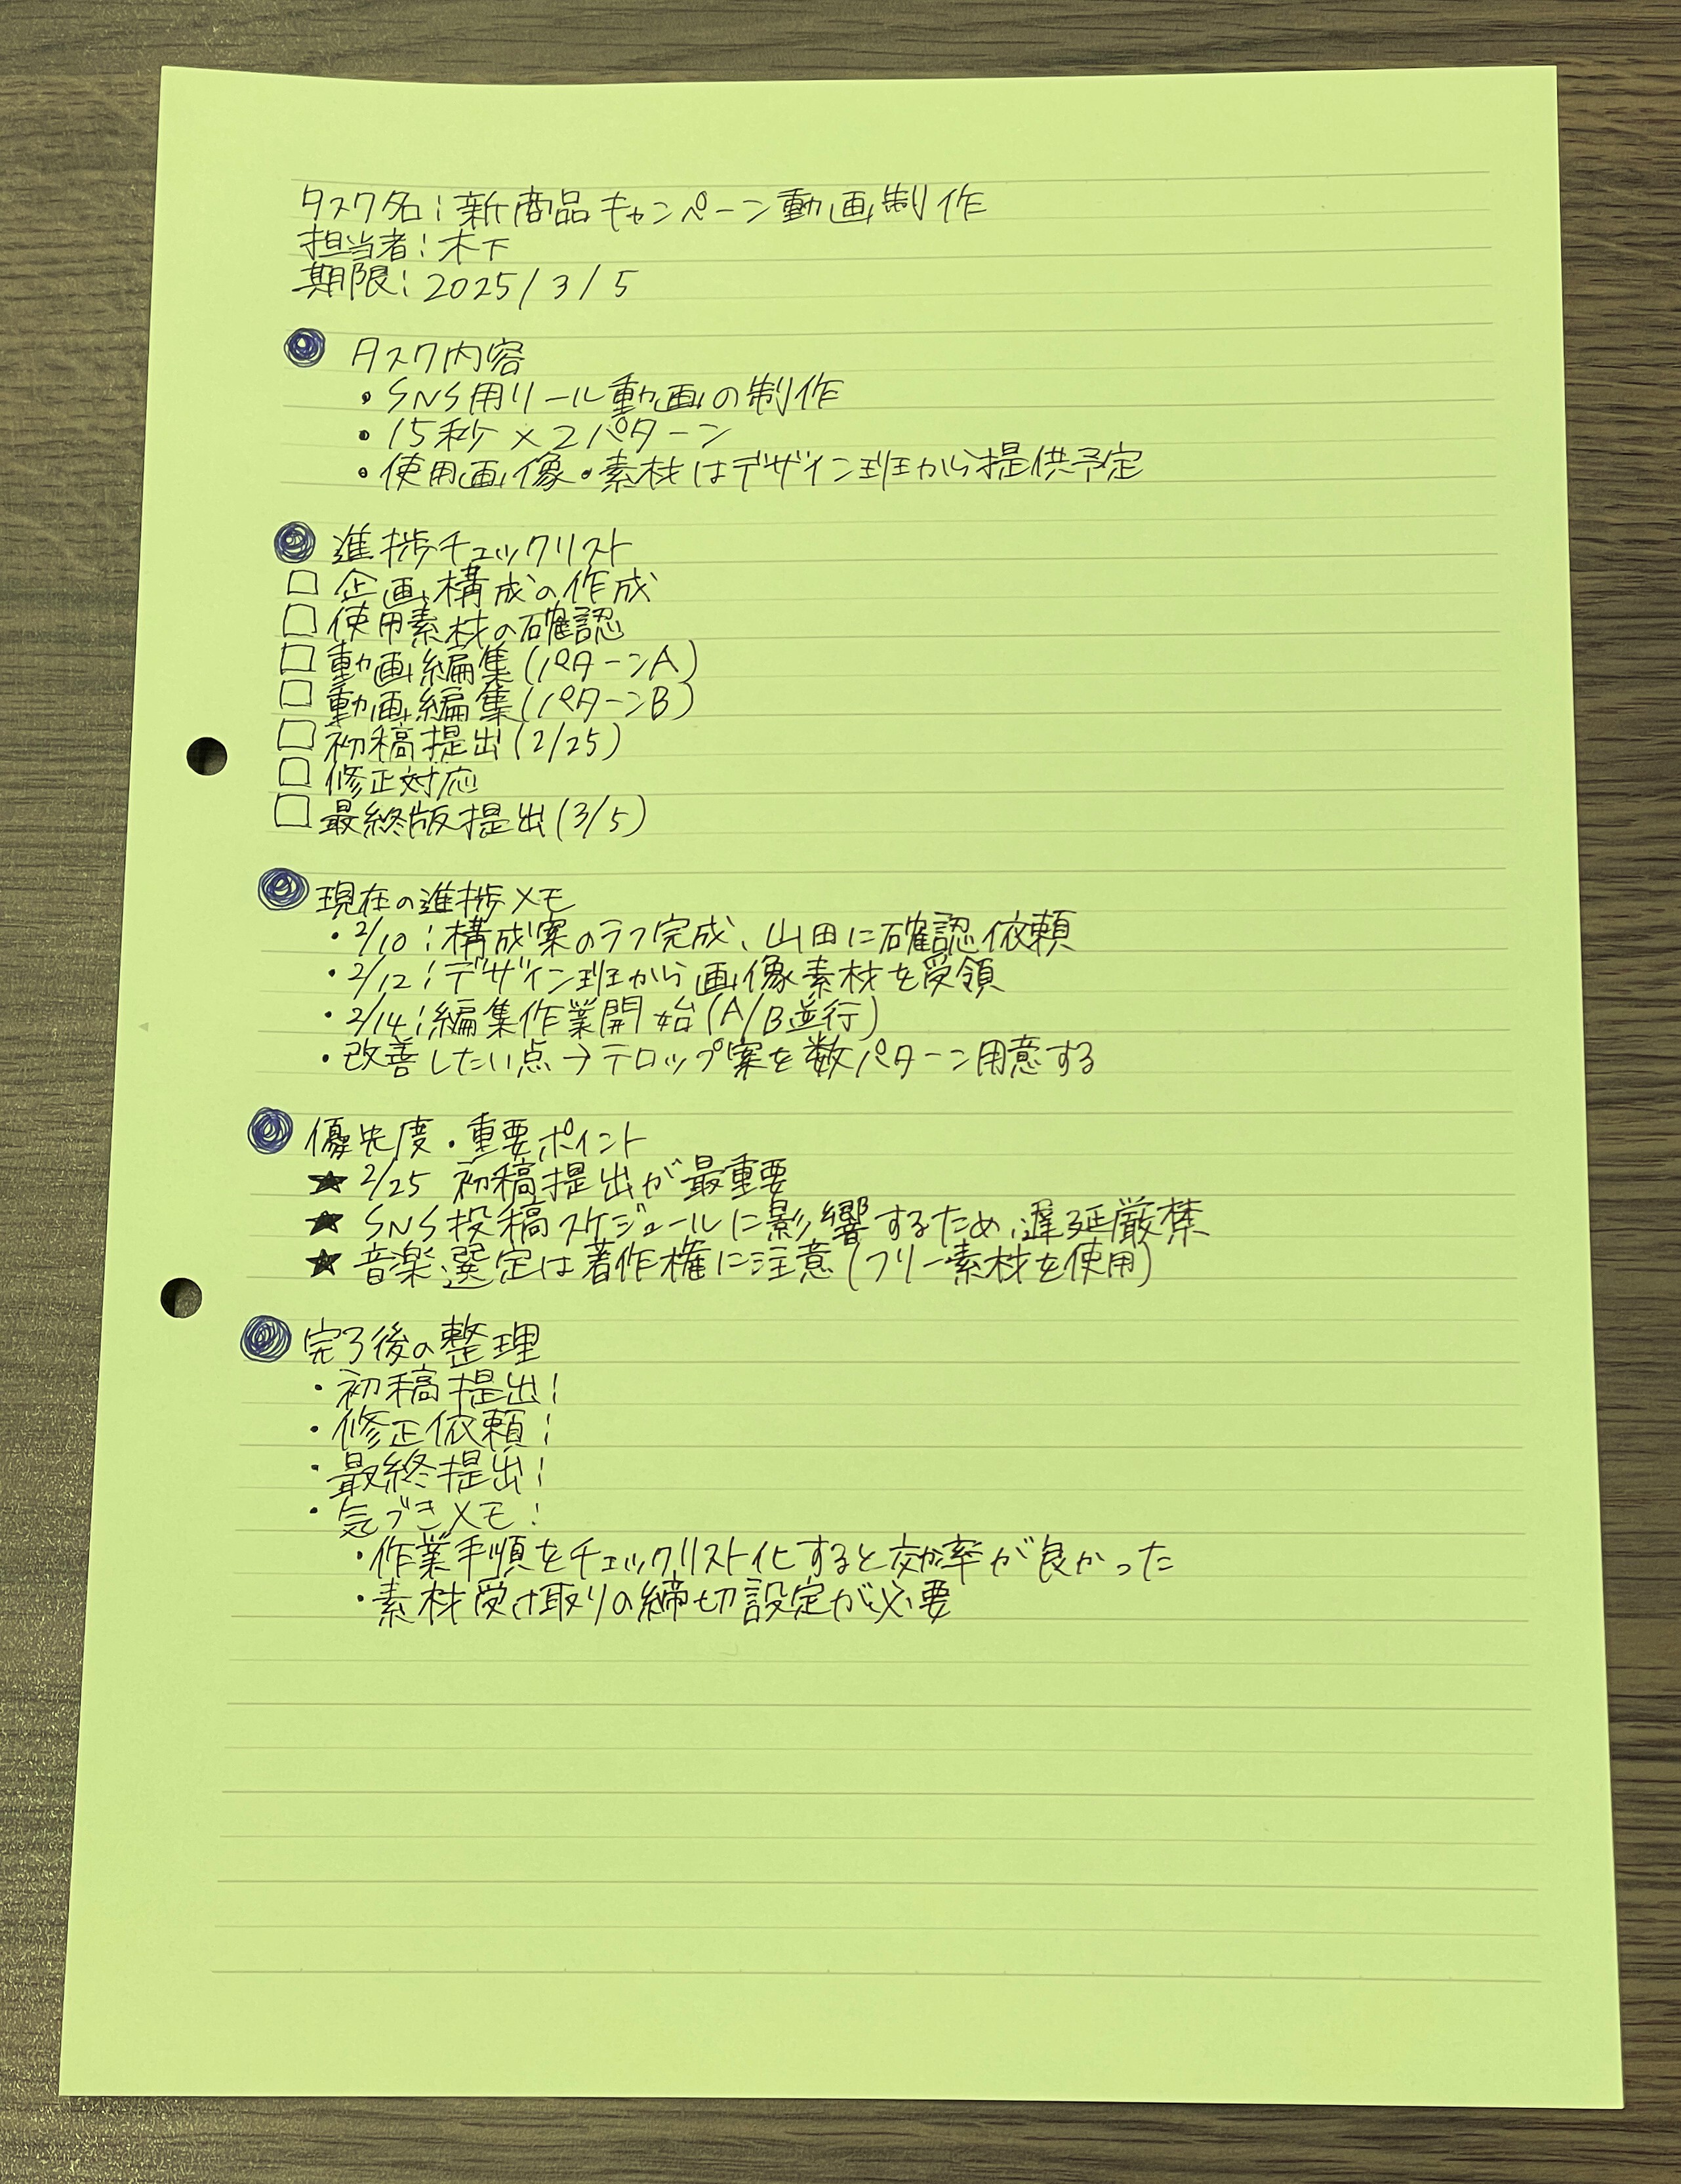 タスク名:新商品キャンペーン動画制作
担当者:木下
期限:2025/3/5
◎ タスク内容
・SNS用リール動画の制作
・15秒×2パターン
・使用画像・素材はデザイン班から提供予定
◎ 進捗チェックリスト
□ 企画構成の作成
□ 使用素材の確認
□ 動画編集(パターンA)
□ 動画編集(パターンB)
□ 初稿提出(2/25)
□ 修正対応
□ 最終版提出(3/5)
◎ 現在の進捗メモ
・2/10:構成案のラフ完成、山田に確認依頼
・2/12:デザイン班から画像素材を受領
・2/14:編集作業開始(A/B並行)
・改善したい点→テロップ案を数パターン用意する
◎ 優先度・重要ポイント
★ 2/25 初稿提出が最重要
★ SNS投稿スケジュールに影響するため、遅延厳禁
★ 音楽選定は著作権に注意(フリー素材を使用)
◎ 完了後の整理
・初稿提出:
・修正依頼:
・最終提出:
・気づきメモ:
・作業手順をチェックリスト化すると効率が良かった
・素材受け取りの締切設定が必要